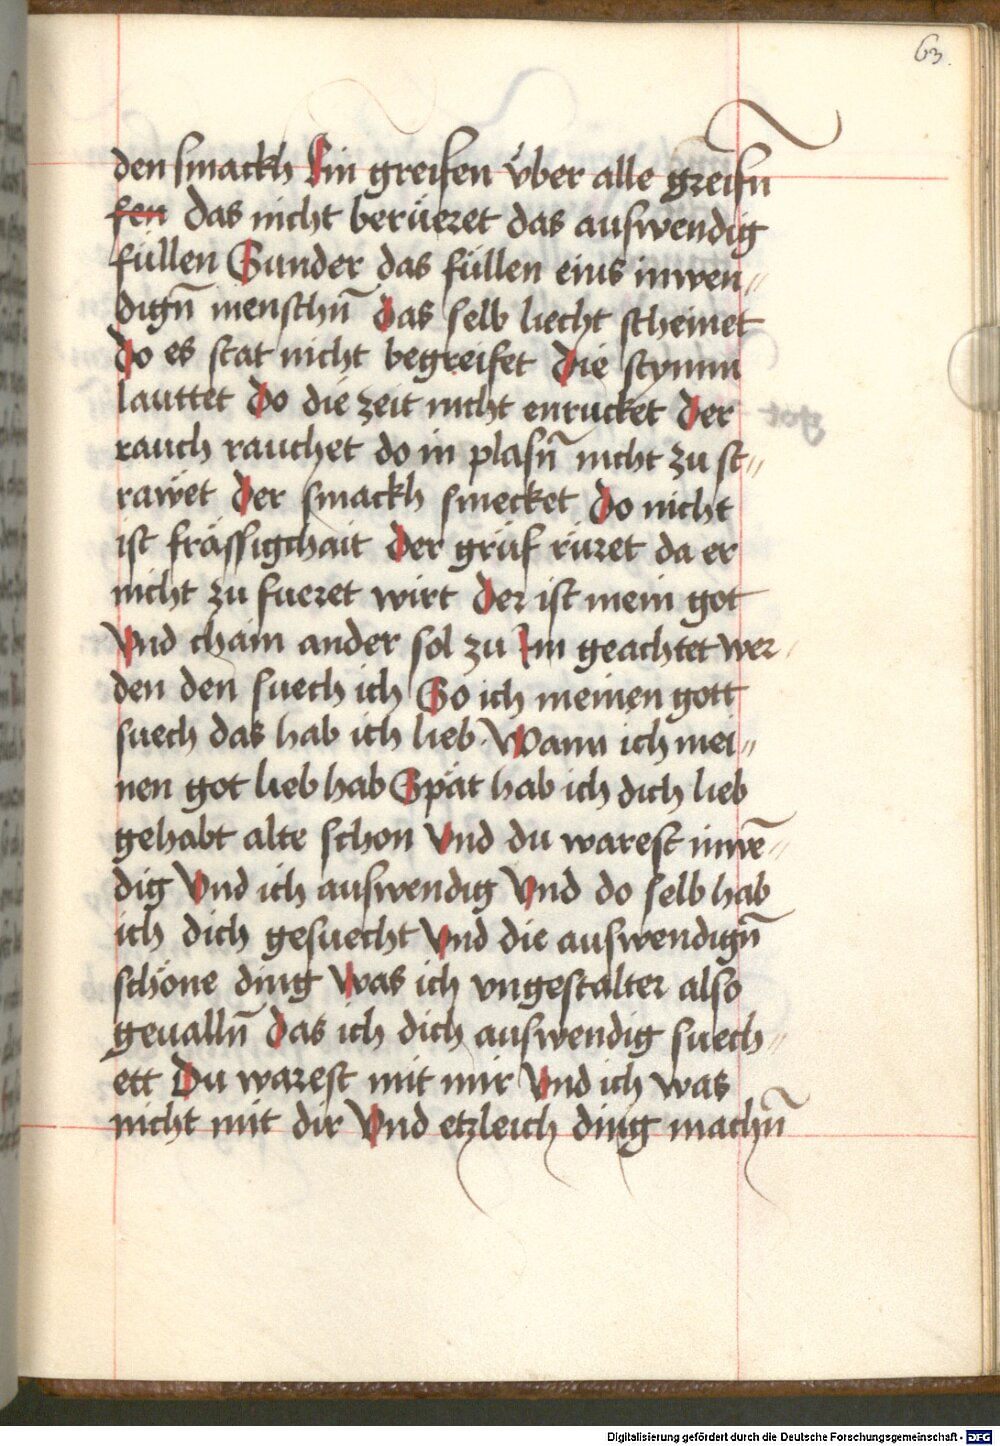 63.
den smackh Ein greifen vber alle greifn̄
fen das nicht berüeret das auswendig
füllen Sunder das füllen eins inwen〃
dign̄ menschn̄ das selb liecht scheinet
do es stat nicht begreifet die stymm
lauttet do die zeit nicht enrucket der
rauch rauchet do in plasn̄ nicht zu st〃
räwet der smackh smecket do nicht
ist frässigchait der grüf rüret da er
nicht zu fueret wirt der ist mein got
Vnd chain ander sol zu Im geachtet wer
den den suech ich So ich meinen gott
suech das hab ich lieb. Wann ich mei〃
nen got lieb hab Spät hab ich dich lieb
gehabt alte schon Vnd du warest inwē〃
dig Vnd ich auswendig Vnd do selb hab
ich dich gesuecht Vnd die auswendign̄
schöne ding Was ich vngestalter also
geualln̄ das ich dich auswendig suech〃
ett Du warest mit mir Vnd ich was
nicht mit dir Vnd etzleich ding machn̄
Digitalisierung gefördert durch die Deutsche Forschungsgemeinschaft - DFG